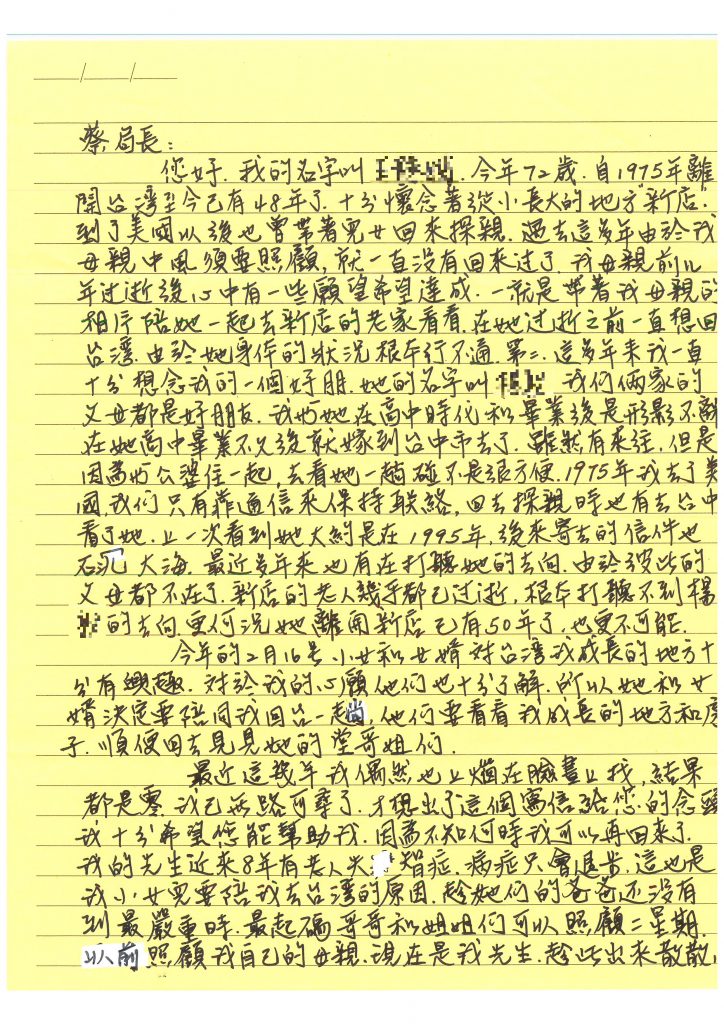 蔡局長：
您好. 我的名字叫 . 今年72歲. 自1975年離
開台灣至今已有48年了. 十分懷念著從小長大的地方"新店".
到了美國以後也曾帶著兒女回來探親. 過去這多年由於我
母親中風須要照顧, 就一直沒有回來过了. 我母親前几
年过逝後心中有一些願望希望達成. 一就是帶著我母親的
相片陪她一起去新店的老家看看. 在她过逝之前一直想回
台湾. 由於她身体的狀況根本行不通. 第二. 這多年来我一直
十分想念我的一個好朋. 她的名字叫 我们倆家的
父母都是好朋友. 我與她在高中時代和畢業後是形影不離
在她高中畢業不久後就嫁到台中市去了. 雖然有來往, 但是
因為與公婆住一起, 去看她一趟碰不是很方便. 1975年我去了美
國, 我们只有靠通信來保持联絡, 回去探親時也有去台中
看了她. 上一次看到她大約是在1995年, 後來寄去的信件也
石沉大海. 最近多年來也有在打聽她的去向. 由於彼此的
父母都不在了. 新店的老人幾乎都已过逝, 根本打聽不到楊
的去向. 更何況她離開新店已有50年了. 也更不可能.
今年的2月16号小女和女婿对台湾我成長的地方十
分有興趣. 对於我的心願他们也十分了解. 所以她和女
婿決定要陪同我回台一起尚, 他们要看看我成長的地方和房
子. 順便回去見見她的堂哥姐们.
最近這幾年我偶然也上網在臉書上找, 結果
都是零. 我已無路可尋了. 才想出了這個寫信給您的念頭
我十分希望您能幫助我. 因為不知何時我可以再回来了.
我的先生近来8年有老人失智症. 病症只會退步. 這也是
我小女兒要陪我去台湾的原因. 趁她们的爸爸还沒有
到最嚴重時. 最起碼哥哥和姐姐们可以照顧二星期.
以前照顧我自己的母親. 現在是我先生. 趁此出來散散